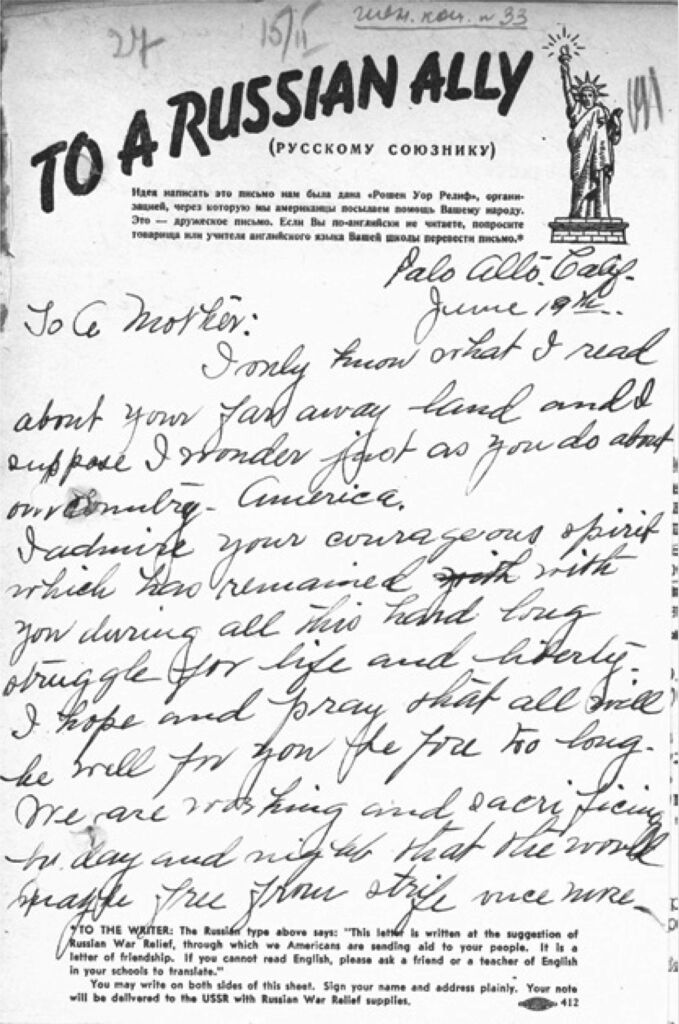 27 15/II
TO A RUSSIAN ALLY
(РУССКОМУ СОЮЗНИКУ)
Идея написать это письмо нам была дана «Рошен Уор Релиф», органи-
зацией, через которую мы американцы посылаем помощь Вашему народу.
Это — дружеское письмо. Если Вы по-английски не читаете, попросите
товарища или учителя английского языка Вашей школы перевести письмо.*
Palo Alto. Calif.
June 19th.
To a Mother:
I only know what I read
about your far away land and I
suppose I wonder just as you do about
our country - America.
I admire your courageous spirit
which has remained with with
you during all this hard long
struggle for life and liberty.
I hope and pray that all will
be well for you be fore too long.
We are working and sacrificing
by day and night that the world
maybe free from strife once more -
*TO THE WRITER: The Russian type above says: "This letter is written at the suggestion of
Russian War Relief, through which we Americans are sending aid to your people. It is a
letter of friendship. If you cannot read English, please ask a friend or a teacher of English
in your schools to translate."
You may write on both sides of this sheet. Sign your name and address plainly. Your note
will be delivered to the USSR with Russian War Relief supplies.
412